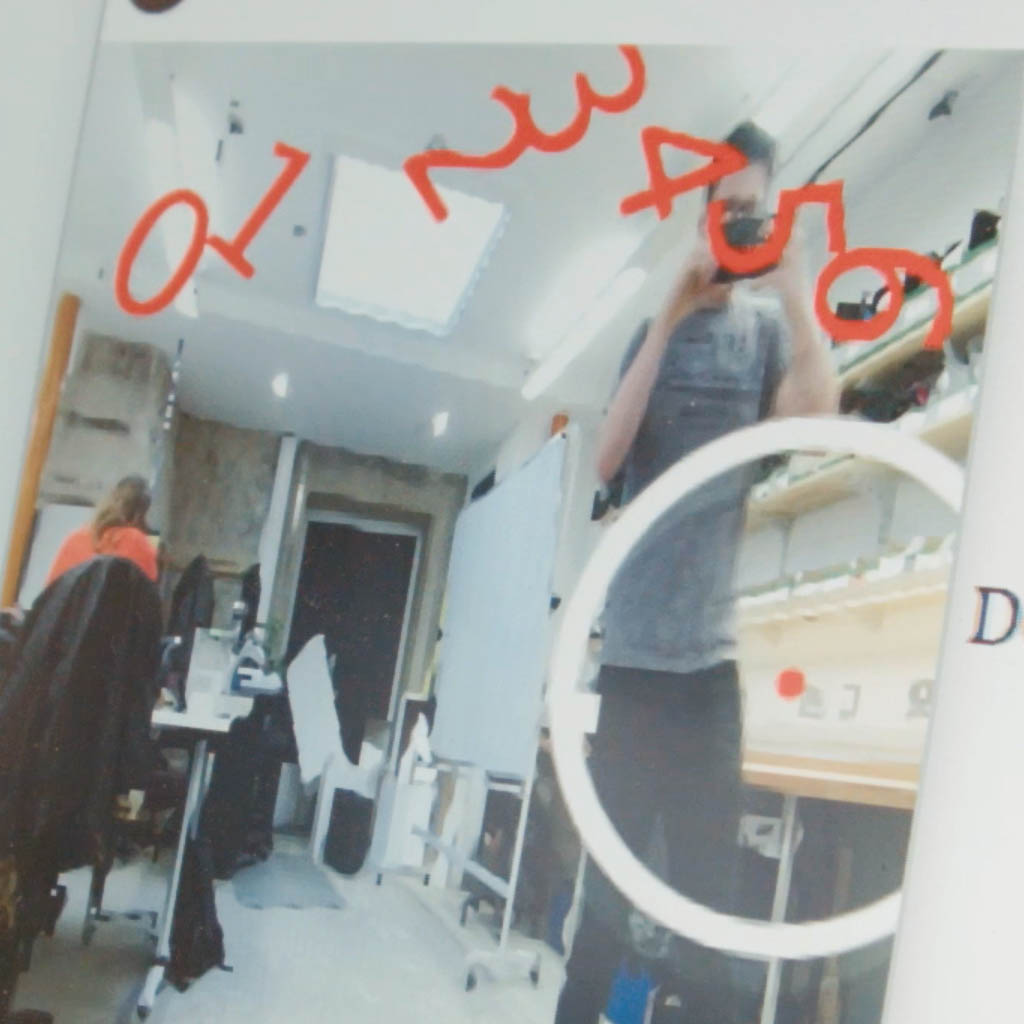 0123456
D